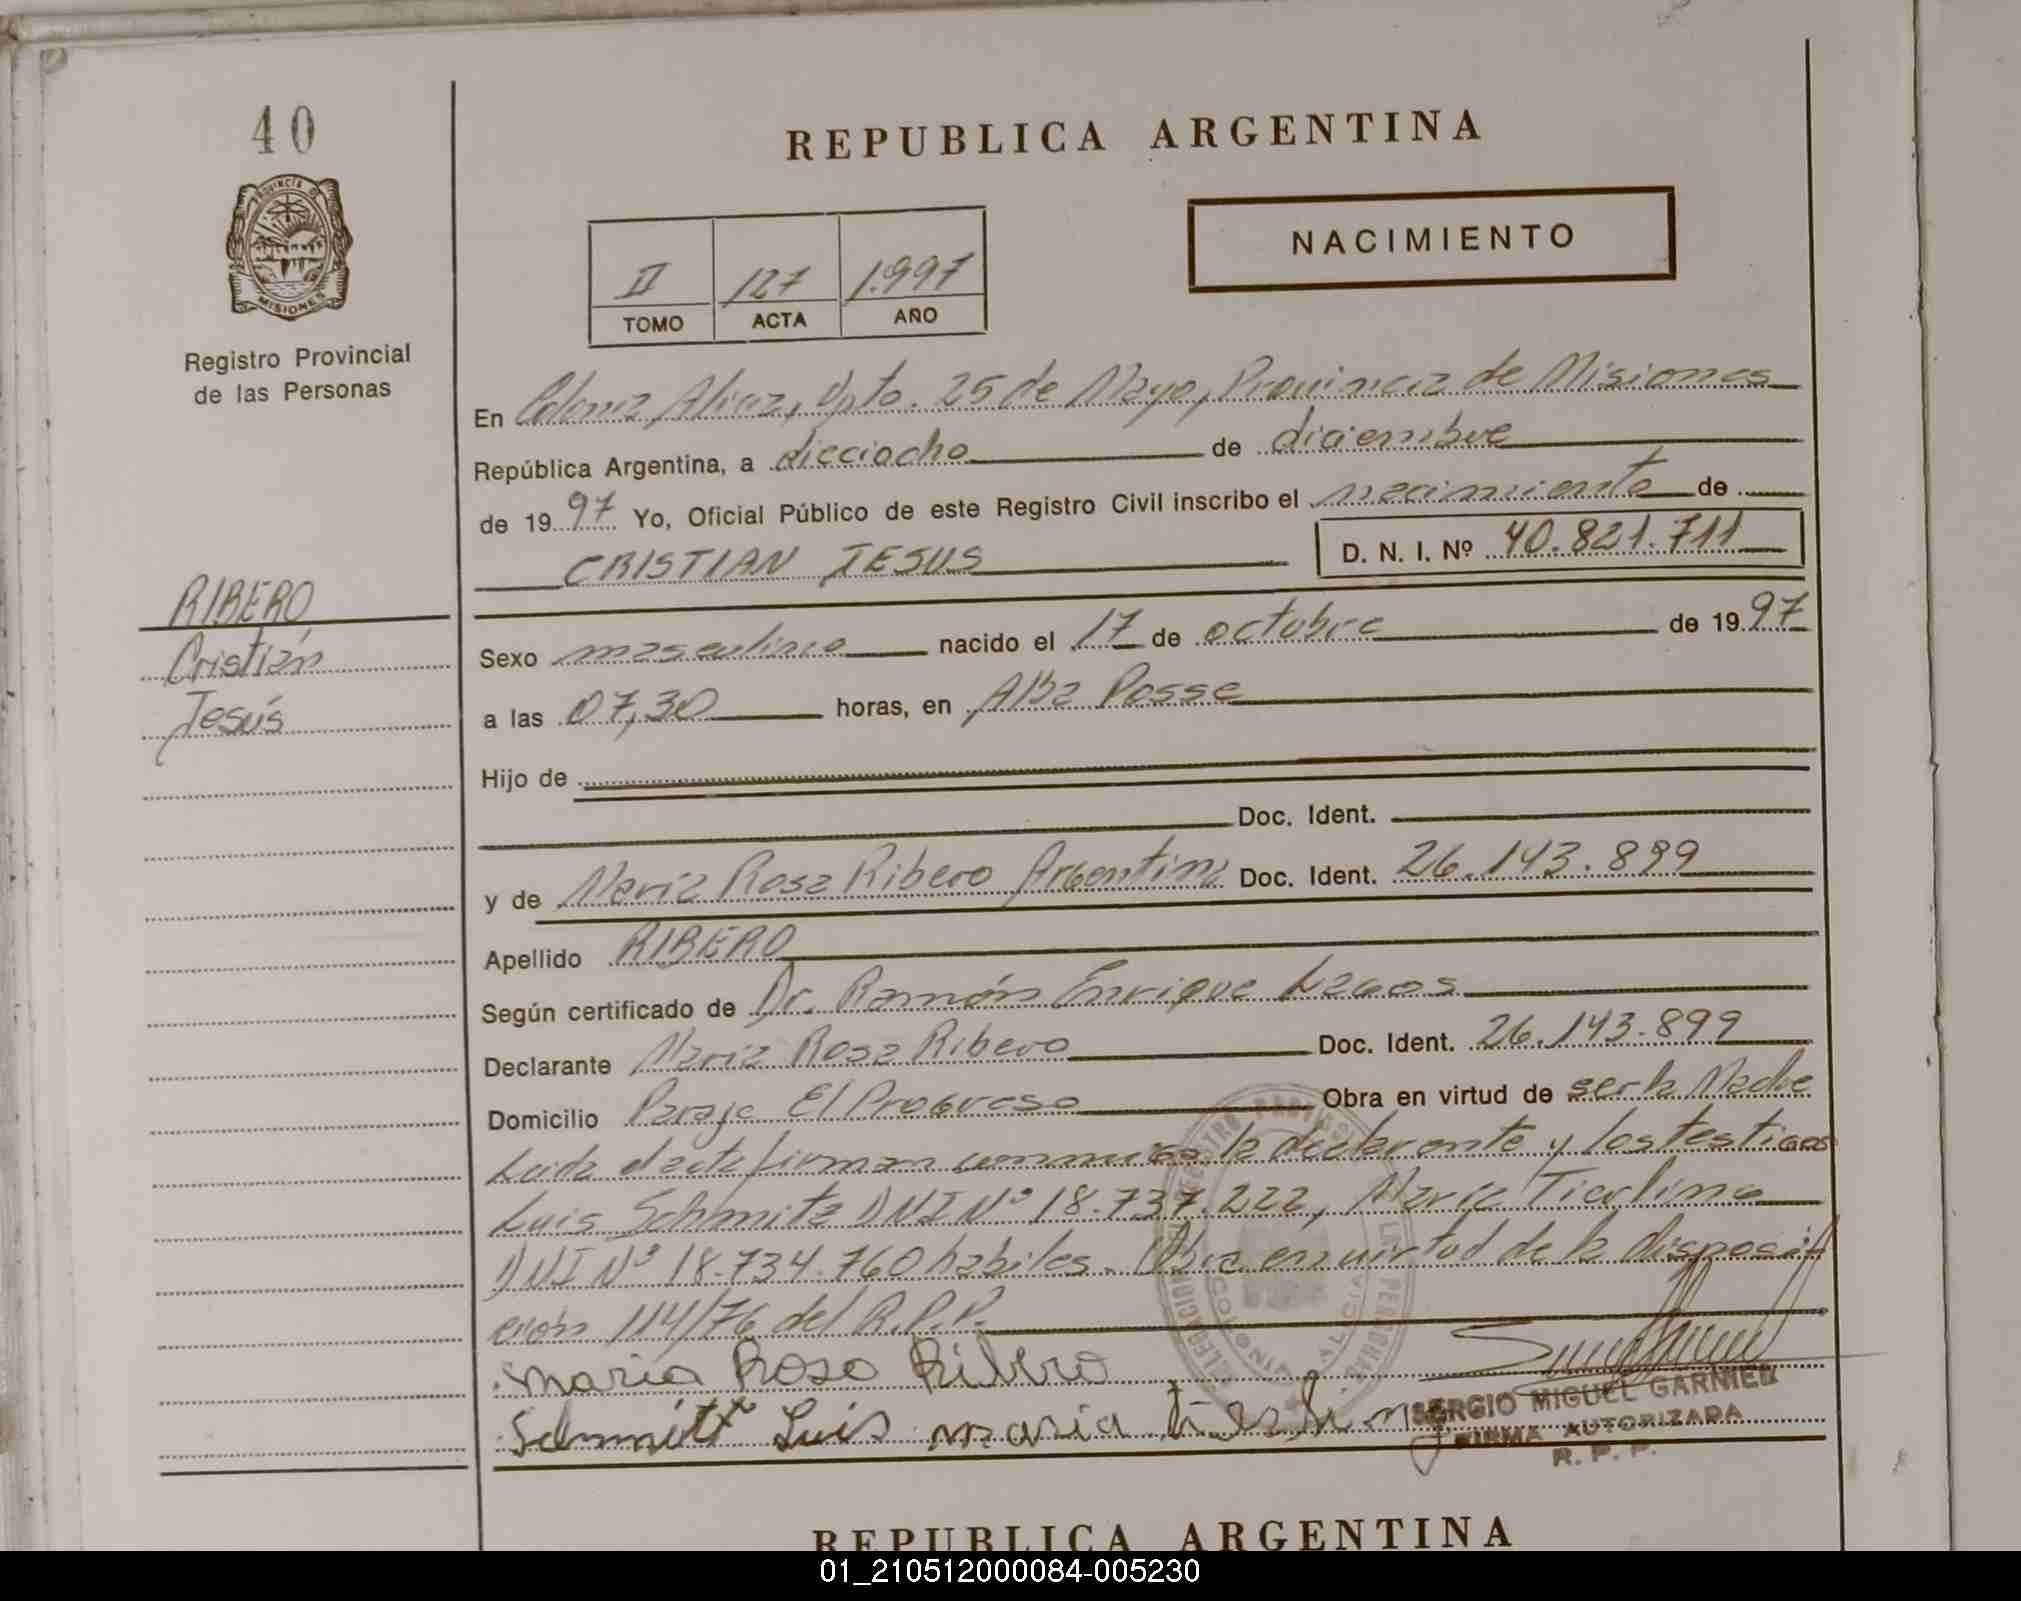 40
PROVINCIA D
MISIONES
Registro Provincial
de las Personas
REPUBLICA ARGENTINA
NACIMIENTO
II 127 1.997
TOMO ACTA AÑO
En Colonia Alicia, Dpto. 25 de Mayo, Provincia de Misiones
República Argentina, a dieciocho de diciembre
de 1997 Yo, Oficial Público de este Registro Civil inscribo el nacimiento de
CRISTIAN JESUS D. N. I. Nº 40.821.711
RIBERO
Cristián
Jesús
Sexo masculino nacido el 17 de octubre de 1997
a las 07,30 horas, en Alba Posse
Hijo de
Doc. Ident.
y de María Rosa Ribero Argentina Doc. Ident. 26.143.899
Apellido RIBERO
Según certificado de Dr. Ramón Enrique Lagos
Declarante María Rosa Ribero Doc. Ident. 26.143.899
Domicilio Paraje El Progreso Obra en virtud de ser la Madre
Leida el acta firman conmigo la declarante y los testigos
Luis Schmitz DNI Nº 18.737.222, María
DNI Nº 18.734.760 habiles. Obra en virtud de la disposi
ción 114/76 del R.P.P.
maria Rosa Ribero
Schmitt Luis maria
SERGIO MIGUEL GARNIER
FIRMA AUTORIZADA
R. P. P.
REPUBLICA ARGENTINA
01_210512000084-005230